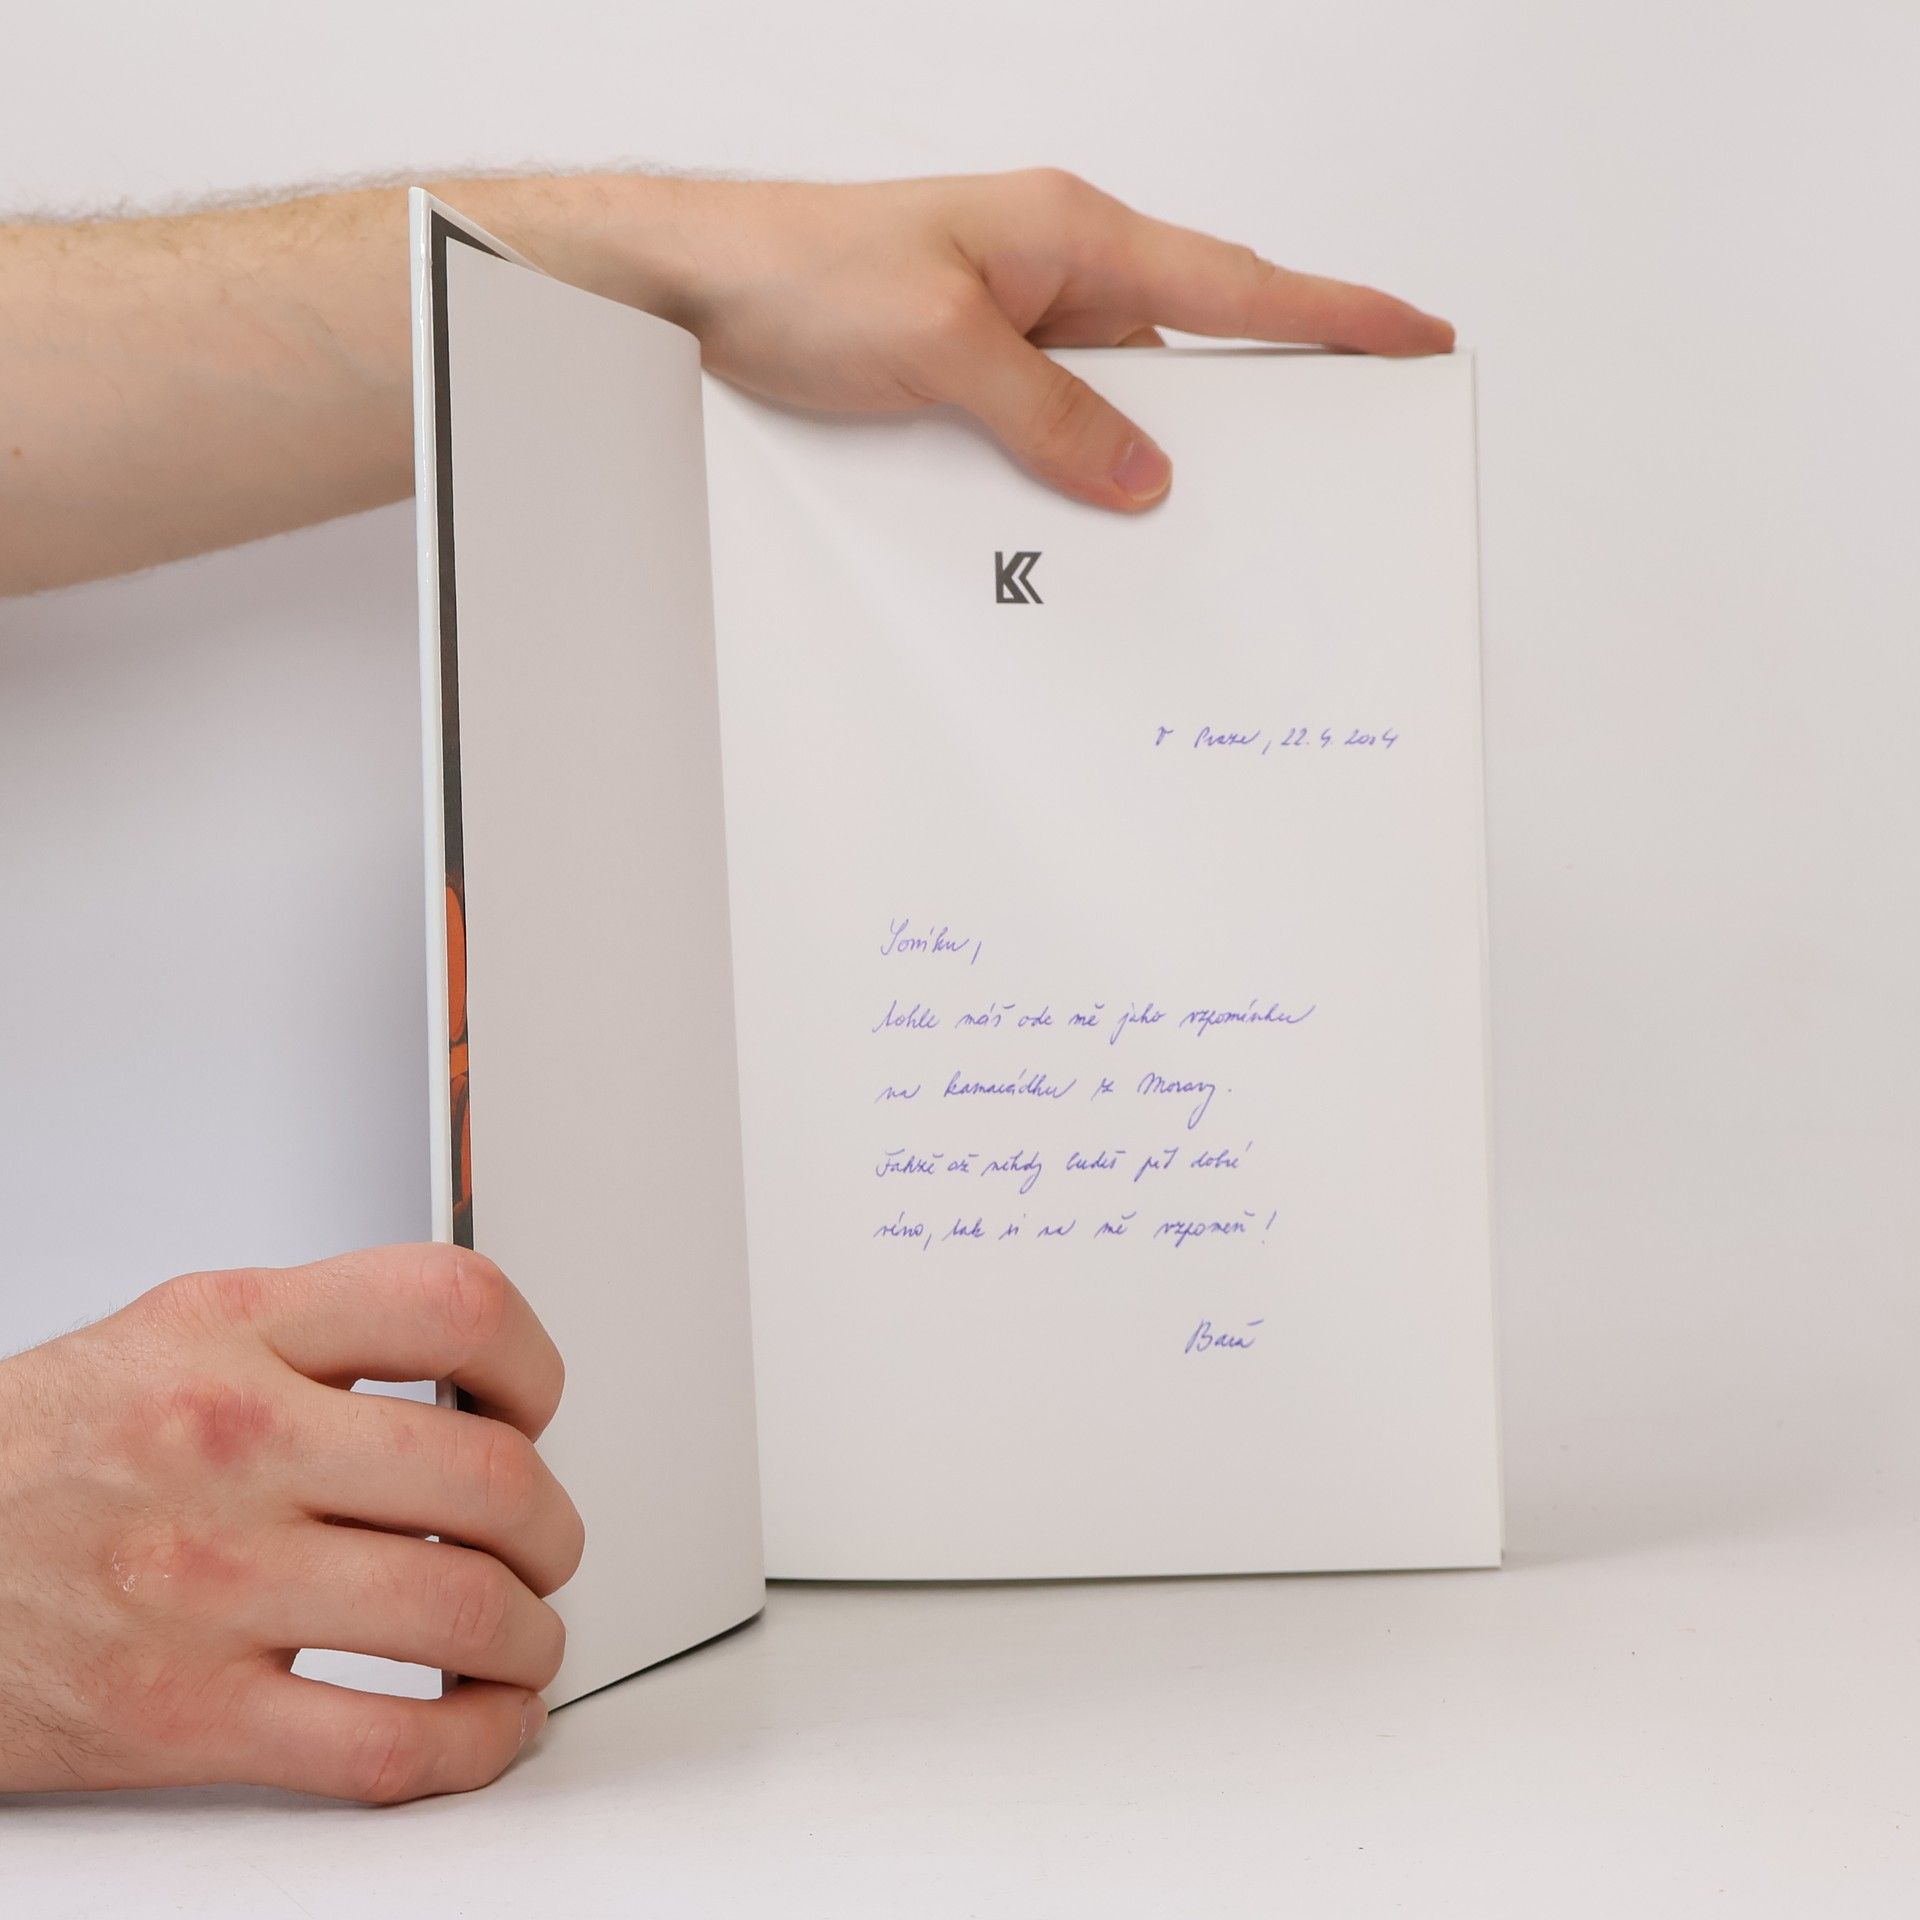 V Praze, 22. 4. 2004
Soníku,
tohle máš ode mě jako vzpomínku
na kamarádku z Moravy.
Takže až někdy budeš pít dobré
víno, tak si na mě vzpomeň!
Bára